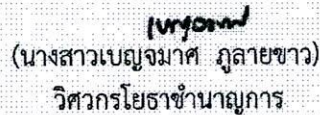 (นางสาวเบญจมาศ ภูลายขาว)
วิศวกรโยธาชำนาญการ